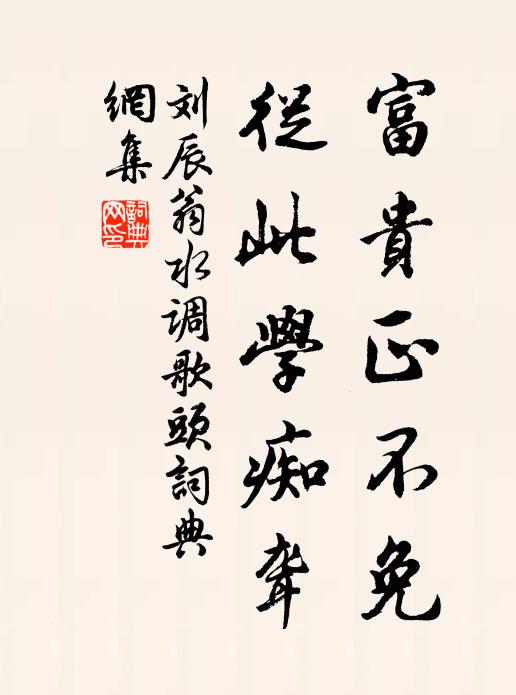 富貴正不免
從此學痴聾
刘辰翁水调歌頭詞典
網集
詞典
网印